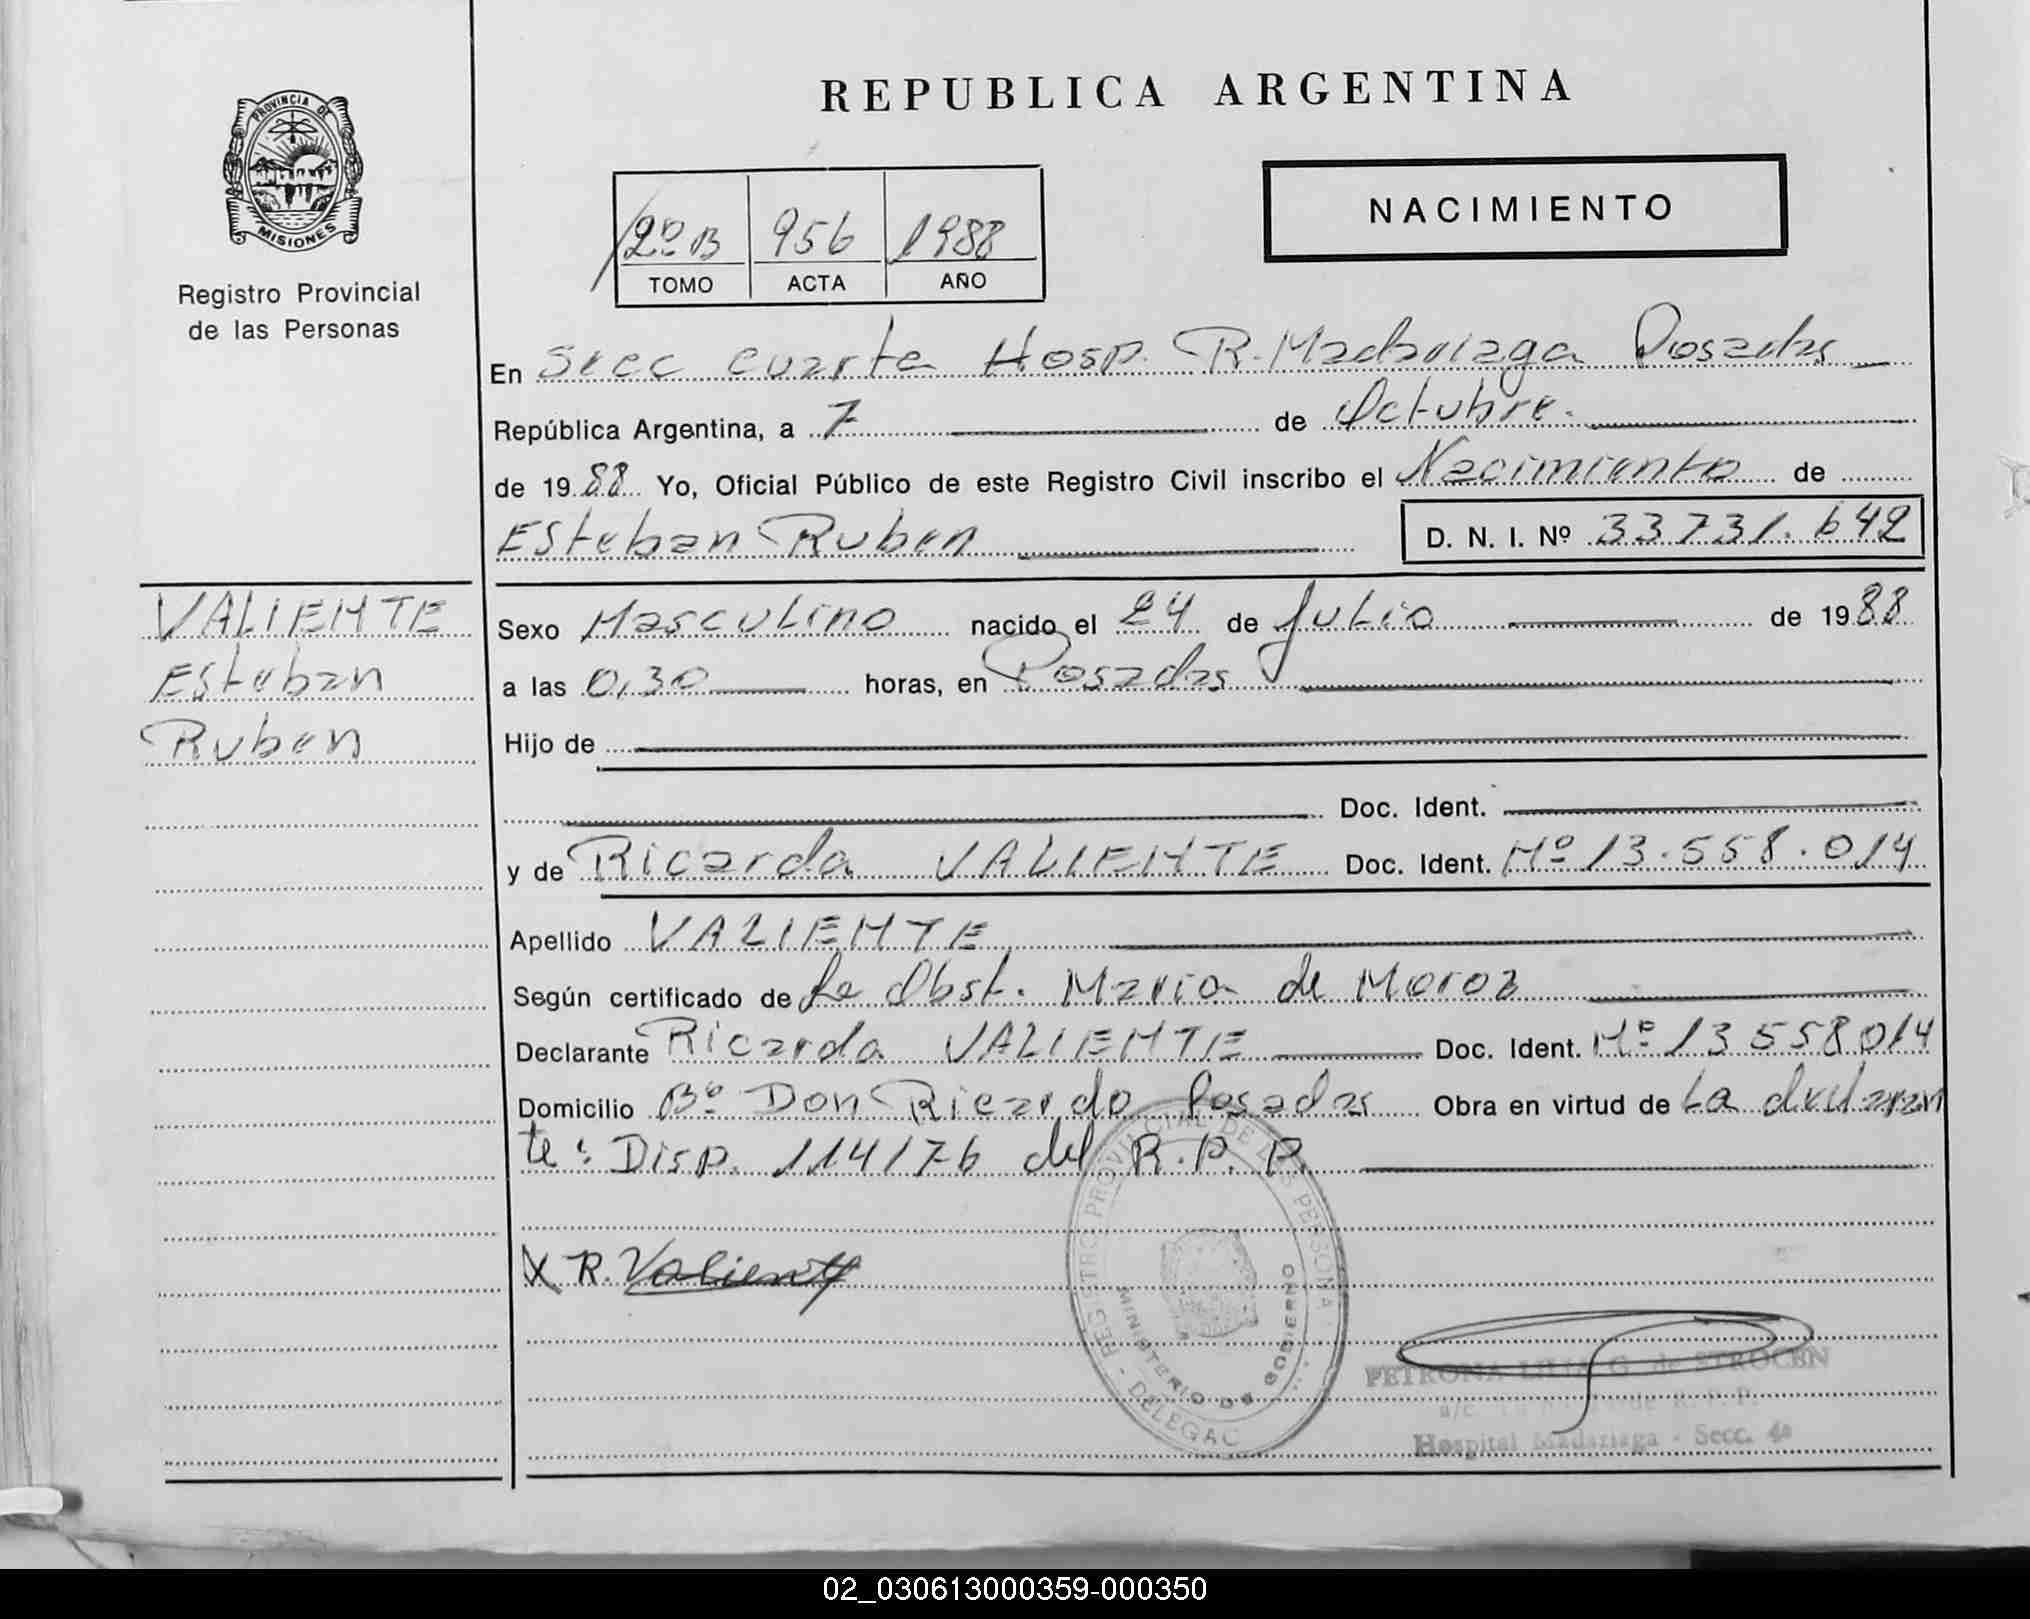 PROVINCIA DE
MISIONES
Registro Provincial
de las Personas
REPUBLICA ARGENTINA
NACIMIENTO
2º B 956 1988
TOMO ACTA AÑO
En Secc cuarta Hosp. R. Madariaga Posadas
República Argentina, a 7 de Octubre.
de 1988 Yo, Oficial Público de este Registro Civil inscribo el Nacimiento de
Esteban Ruben D. N. I. Nº 33731.642
VALIENTE
Esteban
Ruben
Sexo Masculino nacido el 24 de Julio de 1988
a las 0,30 horas, en Posadas
Hijo de
Doc. Ident.
y de Ricarda VALIENTE Doc. Ident. Nº 13.558.014
Apellido VALIENTE
Según certificado de La Obst. Maria de Moroz
Declarante Ricarda VALIENTE Doc. Ident. Nº 13558014
Domicilio Bº Don Ricardo Posadas Obra en virtud de La declaran
te: Disp. 114/76 del R.P.P.
X R. Valiente
REGISTRO PROVINCIAL DE LAS PERSONAS
MINISTERIO DE GOBIERNO
DELEGAC
PETRONA LILIA G. de STROCEN
a/c R. P. P.
Hospital Madariaga - Secc. 4ª
02_030613000359-000350